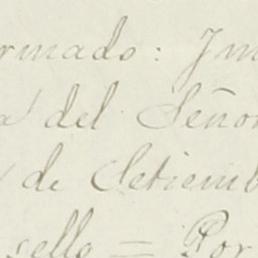 rmado: Jm
a del Señor
de Setiemb
sello = Por